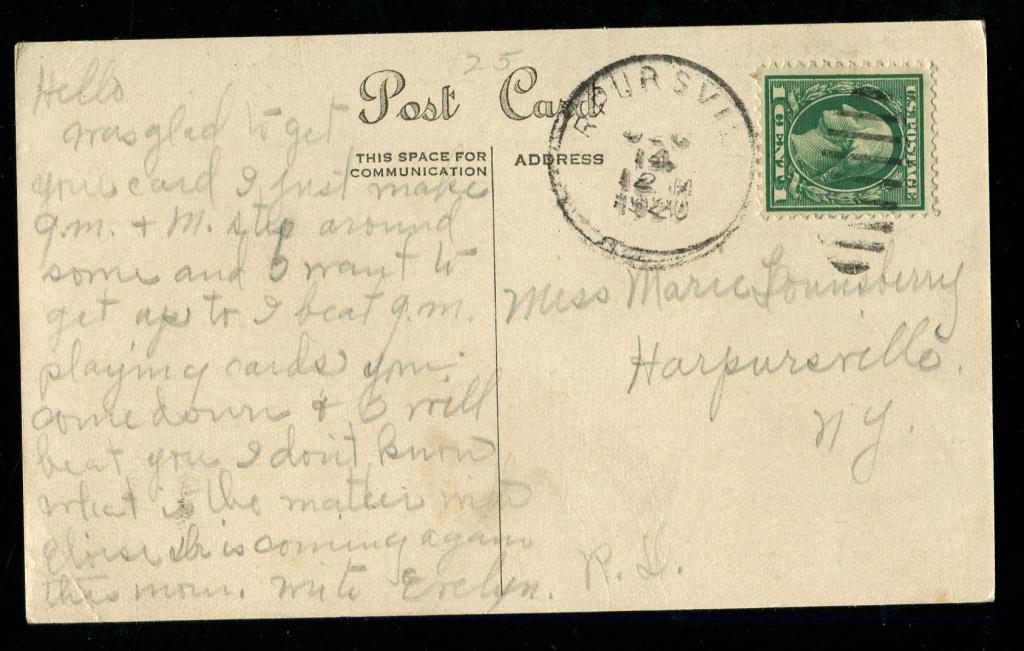 25
Post Card
THIS SPACE FOR COMMUNICATION
ADDRESS
1 CENT 1
U.S. POSTAGE
14
12 M
1920
Hello
was glad to get
your card I just make
g.m. + M. step around
some and I want to
get up to I beat g.m.
playing cards you
come down + I will
beat you I don't know
what is the matter with
Eloise Dr is coming again
this morn. write Evelyn.
Miss Marie Lounsberry
Harpursville.
N Y.
R. D.